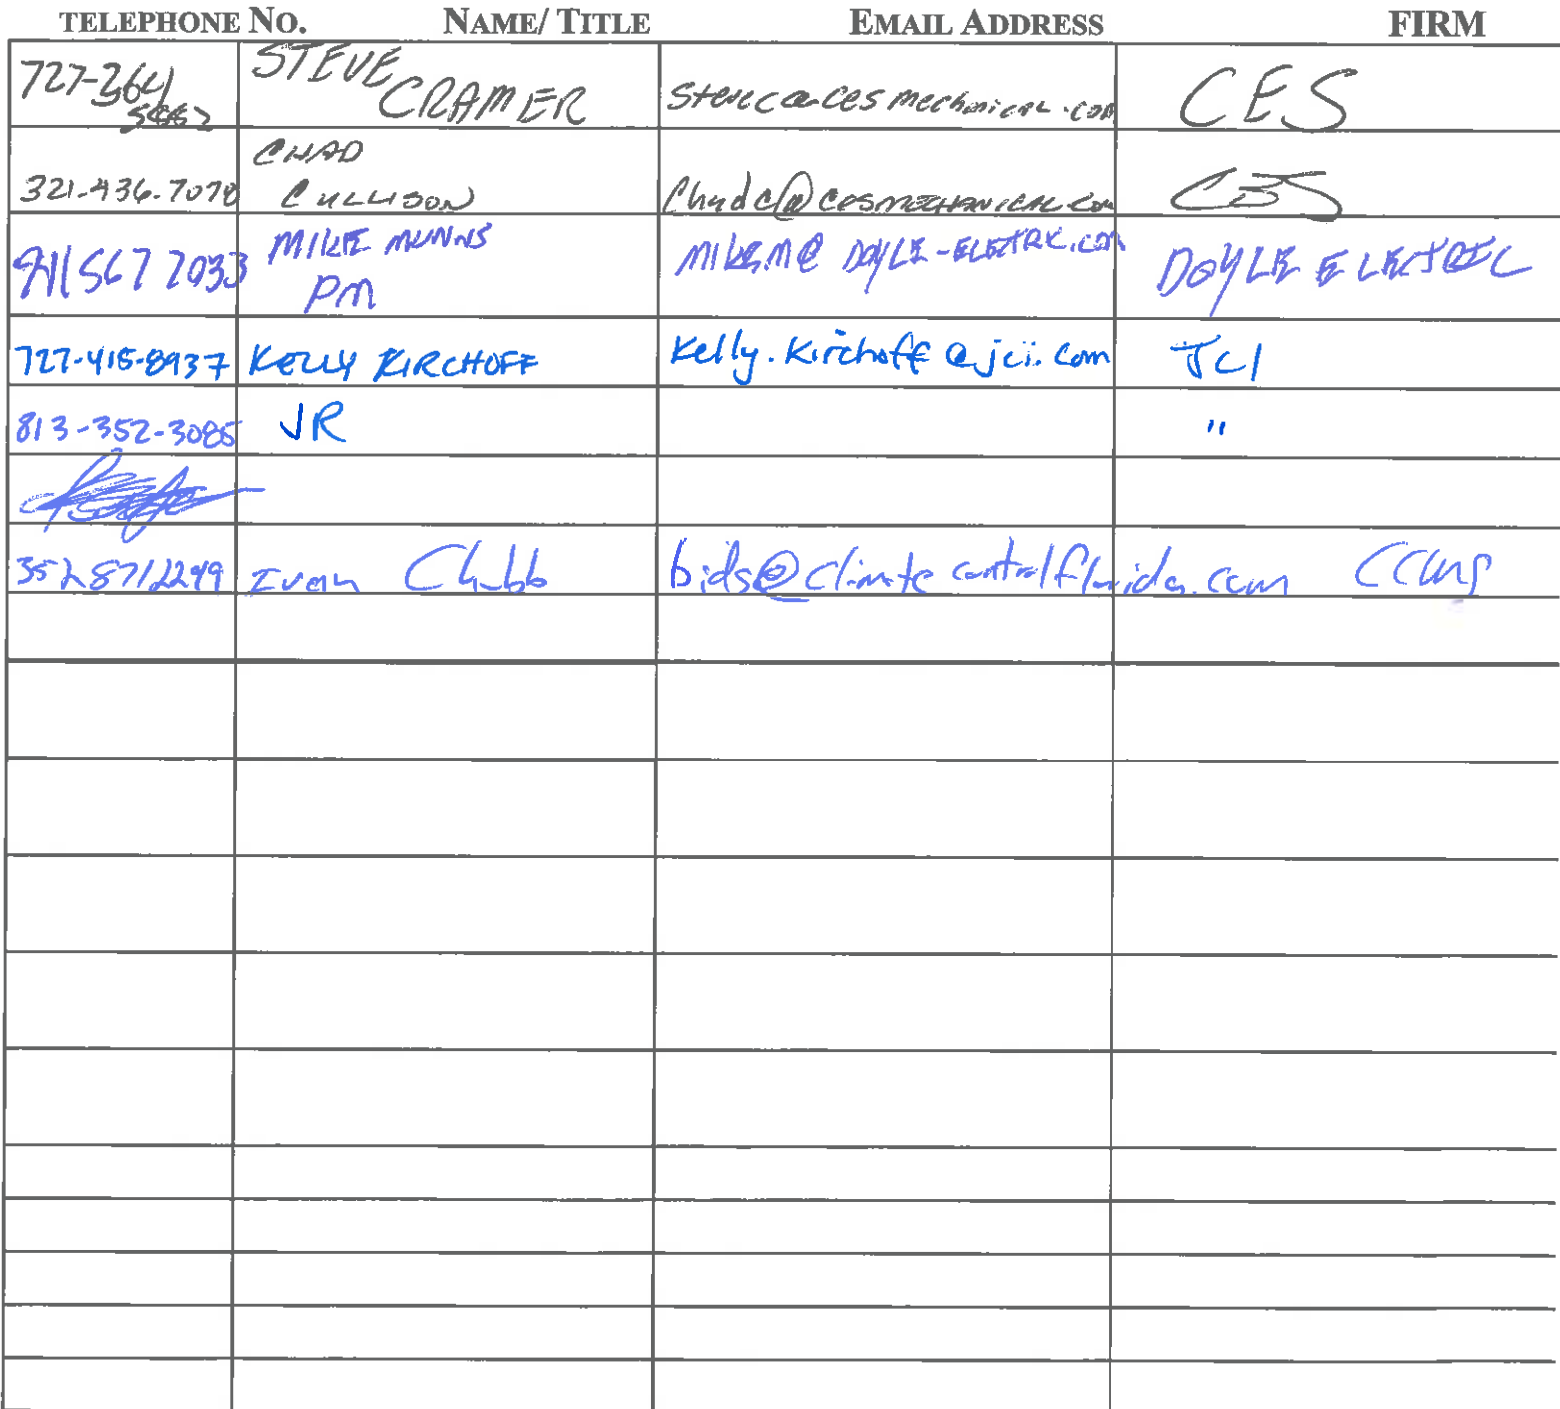 TELEPHONE NO. NAME/ TITLE EMAIL ADDRESS FIRM
727-364 STEVE CRAMER stevec@cesmechanical.com CES
CHAD
321-436-7070 CULLISON Chadc@cesmechanical.com CES
941 567 7033 MIKE MUNNS MIKEM@DOYLE-ELETRIC.COM DOYLE ELECTRIC
PM
727-415-8937 KELLY KIRCHOFF Kelly.Kirchoff@jci.com JCI
813-352-3085 JR "
352 871 2299 Ivan Chubb bids@climatecontrolflorida.com